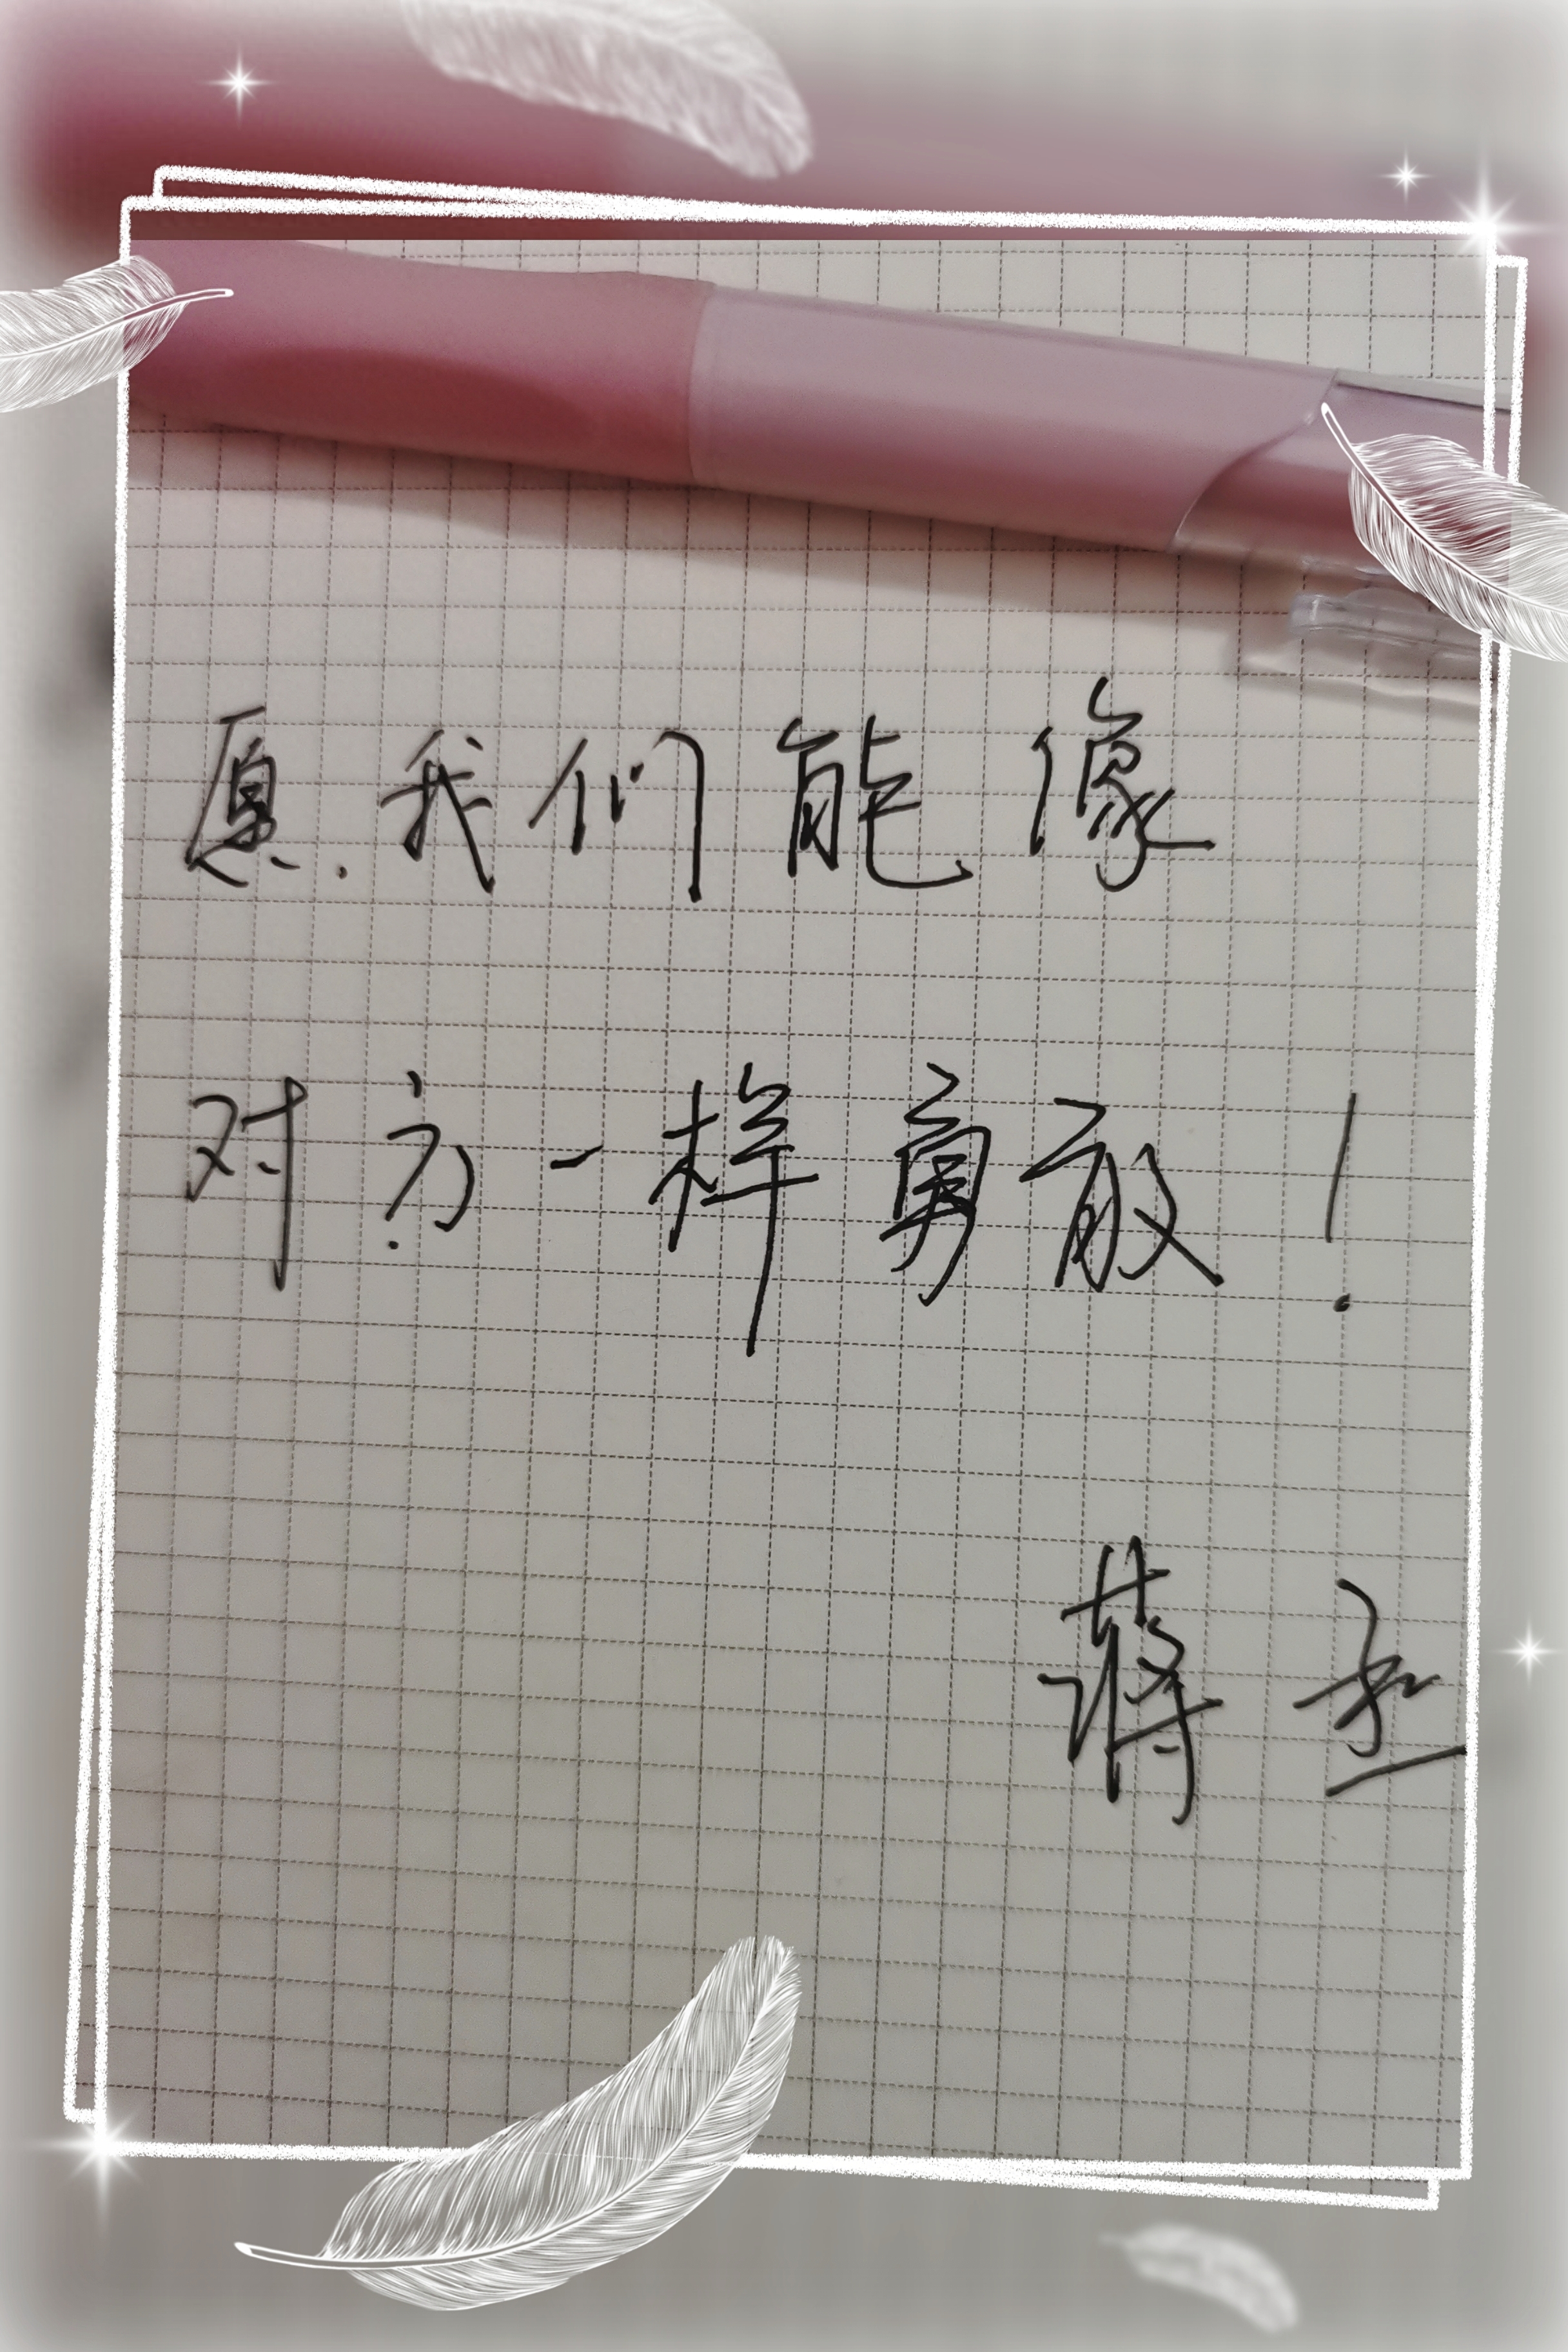 愿我们能像
对方一样勇敢!
蒋丞